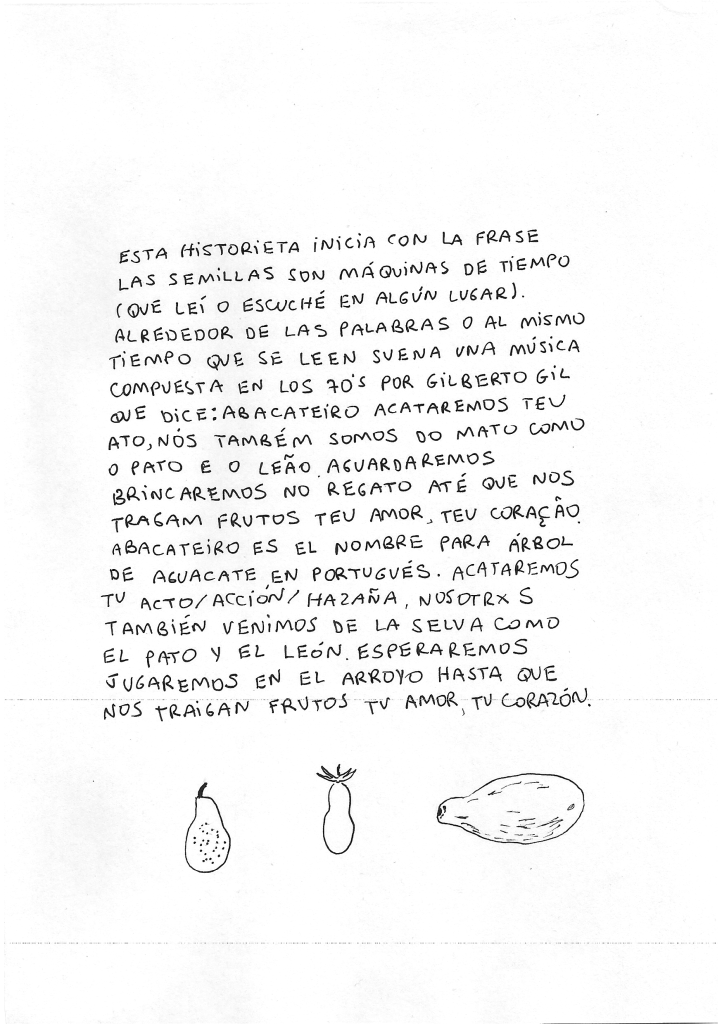 ESTA HISTORIETA INICIA CON LA FRASE
LAS SEMILLAS SON MÁQUINAS DE TIEMPO
(QUE LEÍ O ESCUCHÉ EN ALGÚN LUGAR).
ALREDEDOR DE LAS PALABRAS O AL MISMO
TIEMPO QUE SE LEEN SUENA UNA MÚSICA
COMPUESTA EN LOS 70'S POR GILBERTO GIL
QUE DICE: ABACATEIRO ACATAREMOS TEU
ATO, NÓS TAMBÉM SOMOS DO MATO COMO
O PATO E O LEÃO. AGUARDAREMOS
BRINCAREMOS NO REGATO ATÉ QUE NOS
TRAGAM FRUTOS TEU AMOR, TEU CORAÇÃO.
ABACATEIRO ES EL NOMBRE PARA ÁRBOL
DE AGUACATE EN PORTUGUÉS. ACATAREMOS
TU ACTO/ACCIÓN/HAZAÑA, NOSOTRXS
TAMBIÉN VENIMOS DE LA SELVA COMO
EL PATO Y EL LEÓN. ESPERAREMOS
JUGAREMOS EN EL ARROYO HASTA QUE
NOS TRAIGAN FRUTOS TU AMOR, TU CORAZÓN.